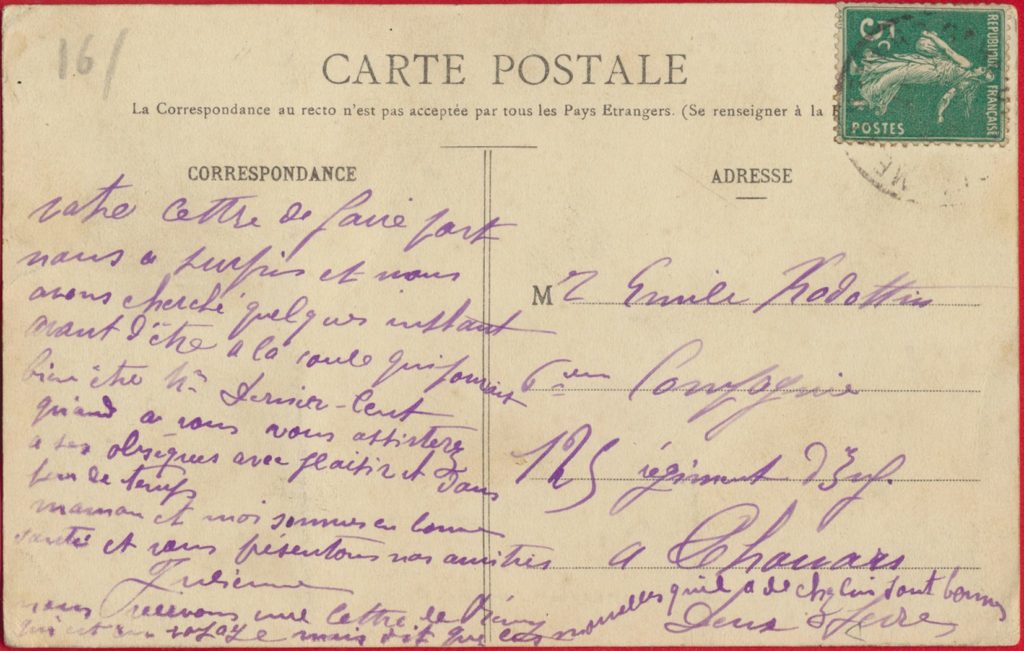 16/
CARTE POSTALE
La Correspondance au recto n'est pas acceptée par tous les Pays Etrangers. (Se renseigner à la
5c
REPUBLIQUE FRANÇAISE
POSTES
CORRESPONDANCE
votre lettre de faire part
nous a surpris et nous
avons cherché quelques instant
avant d'être a la coule qui pourrait
bien être Mr Dernier-Cent
quand a vous vous assisterez
a ses obsèques avec plaisir et dans
peu de temps
maman et moi sommes en bonne
santé et vous présentons nos amitiés
Julienne
nous recevons une lettre de Rémy
qui est en voyage mais dit que les nouvelles qu'il a de sont bonnes
ADRESSE
Mr Emile
6eme Compagnie
125 régiment d'Inf.
a Thouars
Deux Sèvres